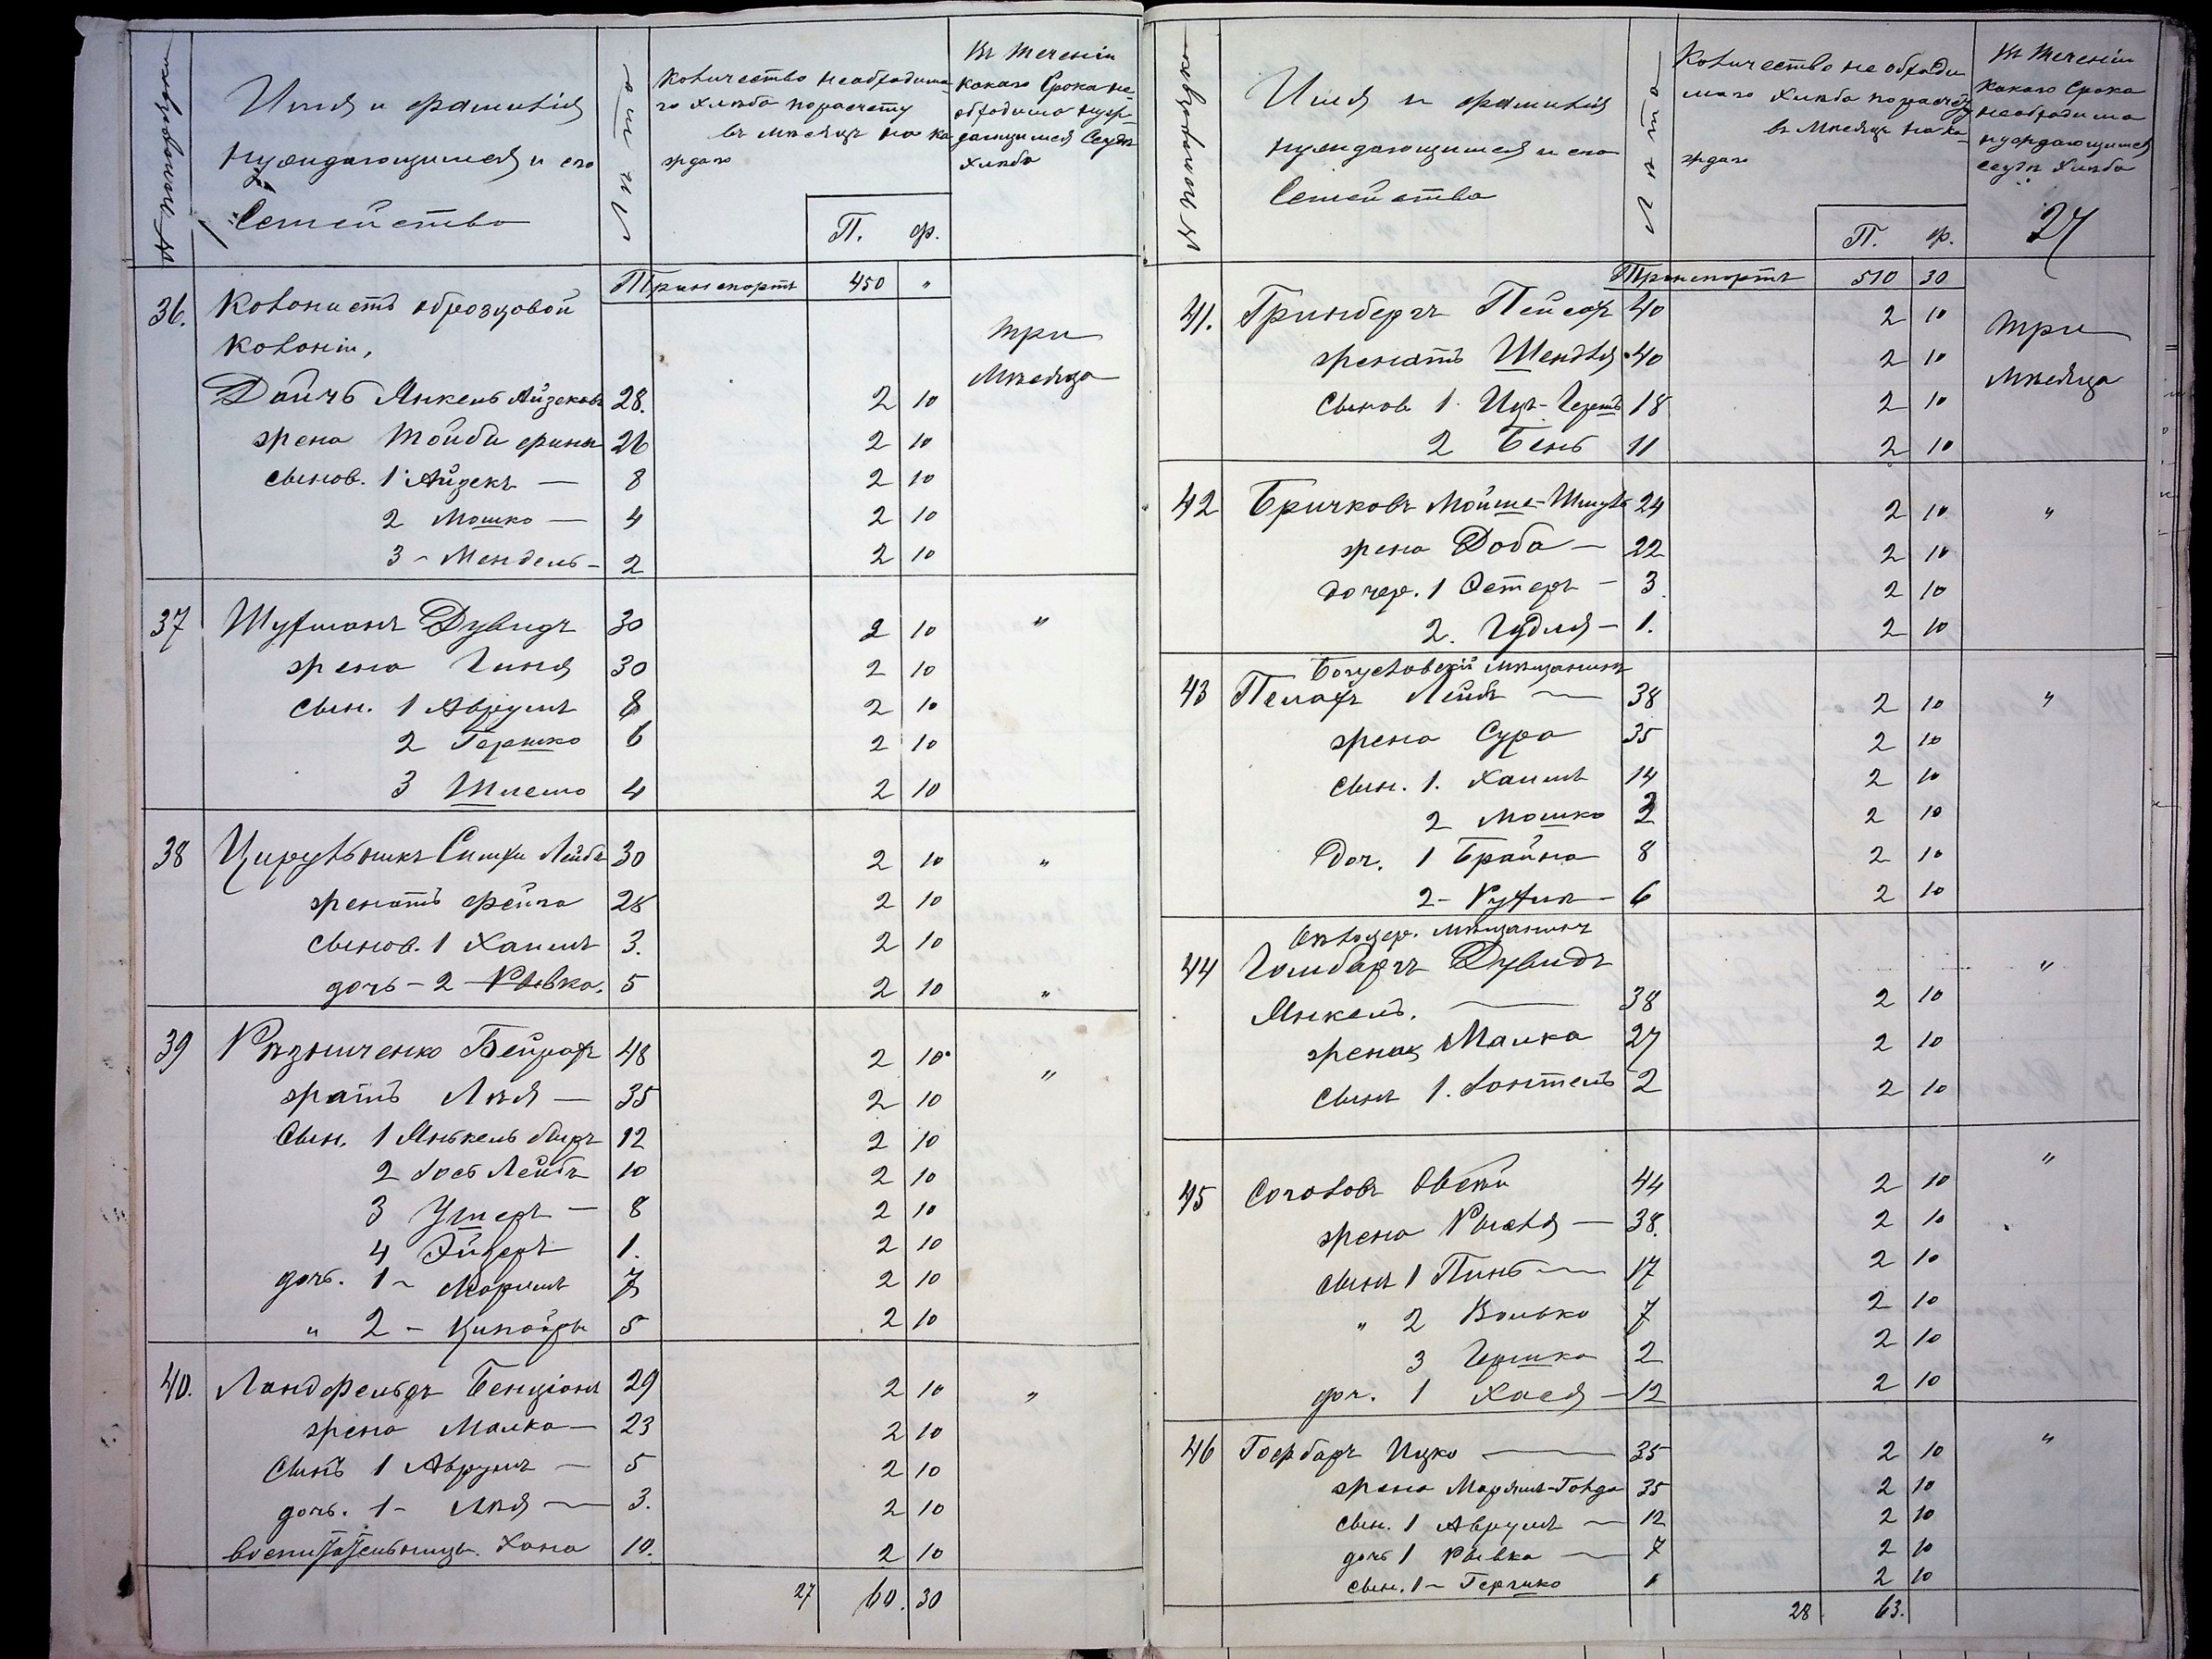 № по порядку
Имя и фамилія
нуждающимся и его
Семейство
Лѣта
Количество необходима-
го хлѣба порасчету
въ мѣсяцъ на ка
ждаго
П. ф.
Въ теченіи
какаго Срока не
обходимо нуж-
дающимся Ссудѣ
хлѣба
Транспортъ 450 "
36. Колонистъ оброзцовой
колоніи,
Дайчъ Янкель Айзековъ 28. 2 10 три
жена Тойби фрина 26 2 10 мѣсяца
сынов. 1 Айзекъ — 8 2 10
2 Мошко — 4 2 10
3 - Мендель - 2 2 10
37 Шухманъ Дувидъ 30 2 10 "
жена Гиня 30 2 10
сын. 1 Аврумъ 8 2 10
2 Гершко 6 2 10
3 Шлемо 4 2 10
38 Цирульникъ Симхи Лейбъ 30 2 10 "
женатъ фейга 28 2 10
сынов. 1 Хаимъ 3. 2 10
дочь - 2 Рывка. 5 2 10 "
39 Рѣзниченко Бейрахъ 48 2 10 "
жатъ Лѣя — 35 2 10
Сын. 1 Янькель 12 2 10
2 Іось Лейбъ 10 2 10
3 Ушеръ — 8 2 10
4 Эйзеръ 1. 2 10
дочь. 1 - Маримъ 7 2 10
" 2 - Ципойры 5 2 10
40. Ландфельдъ Бенціонъ 29 2 10 "
жена Малка — 23 2 10
Сынъ 1 Аврумъ — 5 2 10
дочь. 1 - Лѣя — 3. 2 10
воспитательницы. Хана 10. 2 10
27 60. 30
№ по порядку
Имя и фамилія
нуждающимся и его
Семейства
Лѣта
Количество необходи
маго хлѣба порасчету
въ мѣсяцъ на ка-
ждаго
П. ф.
Въ теченіи
какаго Срока
необходимо
нуждающимся
ссудѣ хлѣба
27
Транспортъ 510 30
41. Гринбергъ Пейсахъ 40 2 10 три
женатъ Шендля 40 2 10 мѣсяца
сынов 1 Ицъ-Гершъ 18 2 10
2 Бень 11 2 10
42 Бричковъ Мойше-Шмуль 24 2 10 "
жена Доба — 22 2 10
дочер. 1 Эстеръ — 3 2 10
2. Гудля — 1. 2 10
Богуславскій мѣщанинъ
43 Пелахъ Лейбъ — 38 2 10 "
жена Сура 35 2 10
сын. 1. Хаимъ 14 2 10
2 Мошко 2 2 10
Доч. 1 Брайна 8 2 10
2 - Рухля — 6 2 10
Бѣлоцер. мѣщанинъ
44 Гомбаргъ Дувидъ "
Янкель. — 38 2 10
жена Малка 27 2 10
сынъ 1. Іонтель 2 2 10
45 Соголовъ Овсѣй 44 2 10 "
жена Рысля — 38. 2 10
сынъ 1 Пинь — 17 2 10
" 2 Волько 7 2 10
3 Гершко 2 2 10
доч. 1 Хася — 12 2 10
46 Гербаръ Ицко — 35 2 10 "
жена Марямъ-Голда 35 2 10
сын. 1 Аврумъ — 12 2 10
дочь 1 Рывка — 7 2 10
сын. 1 - Гершко 1 2 10
28 63.